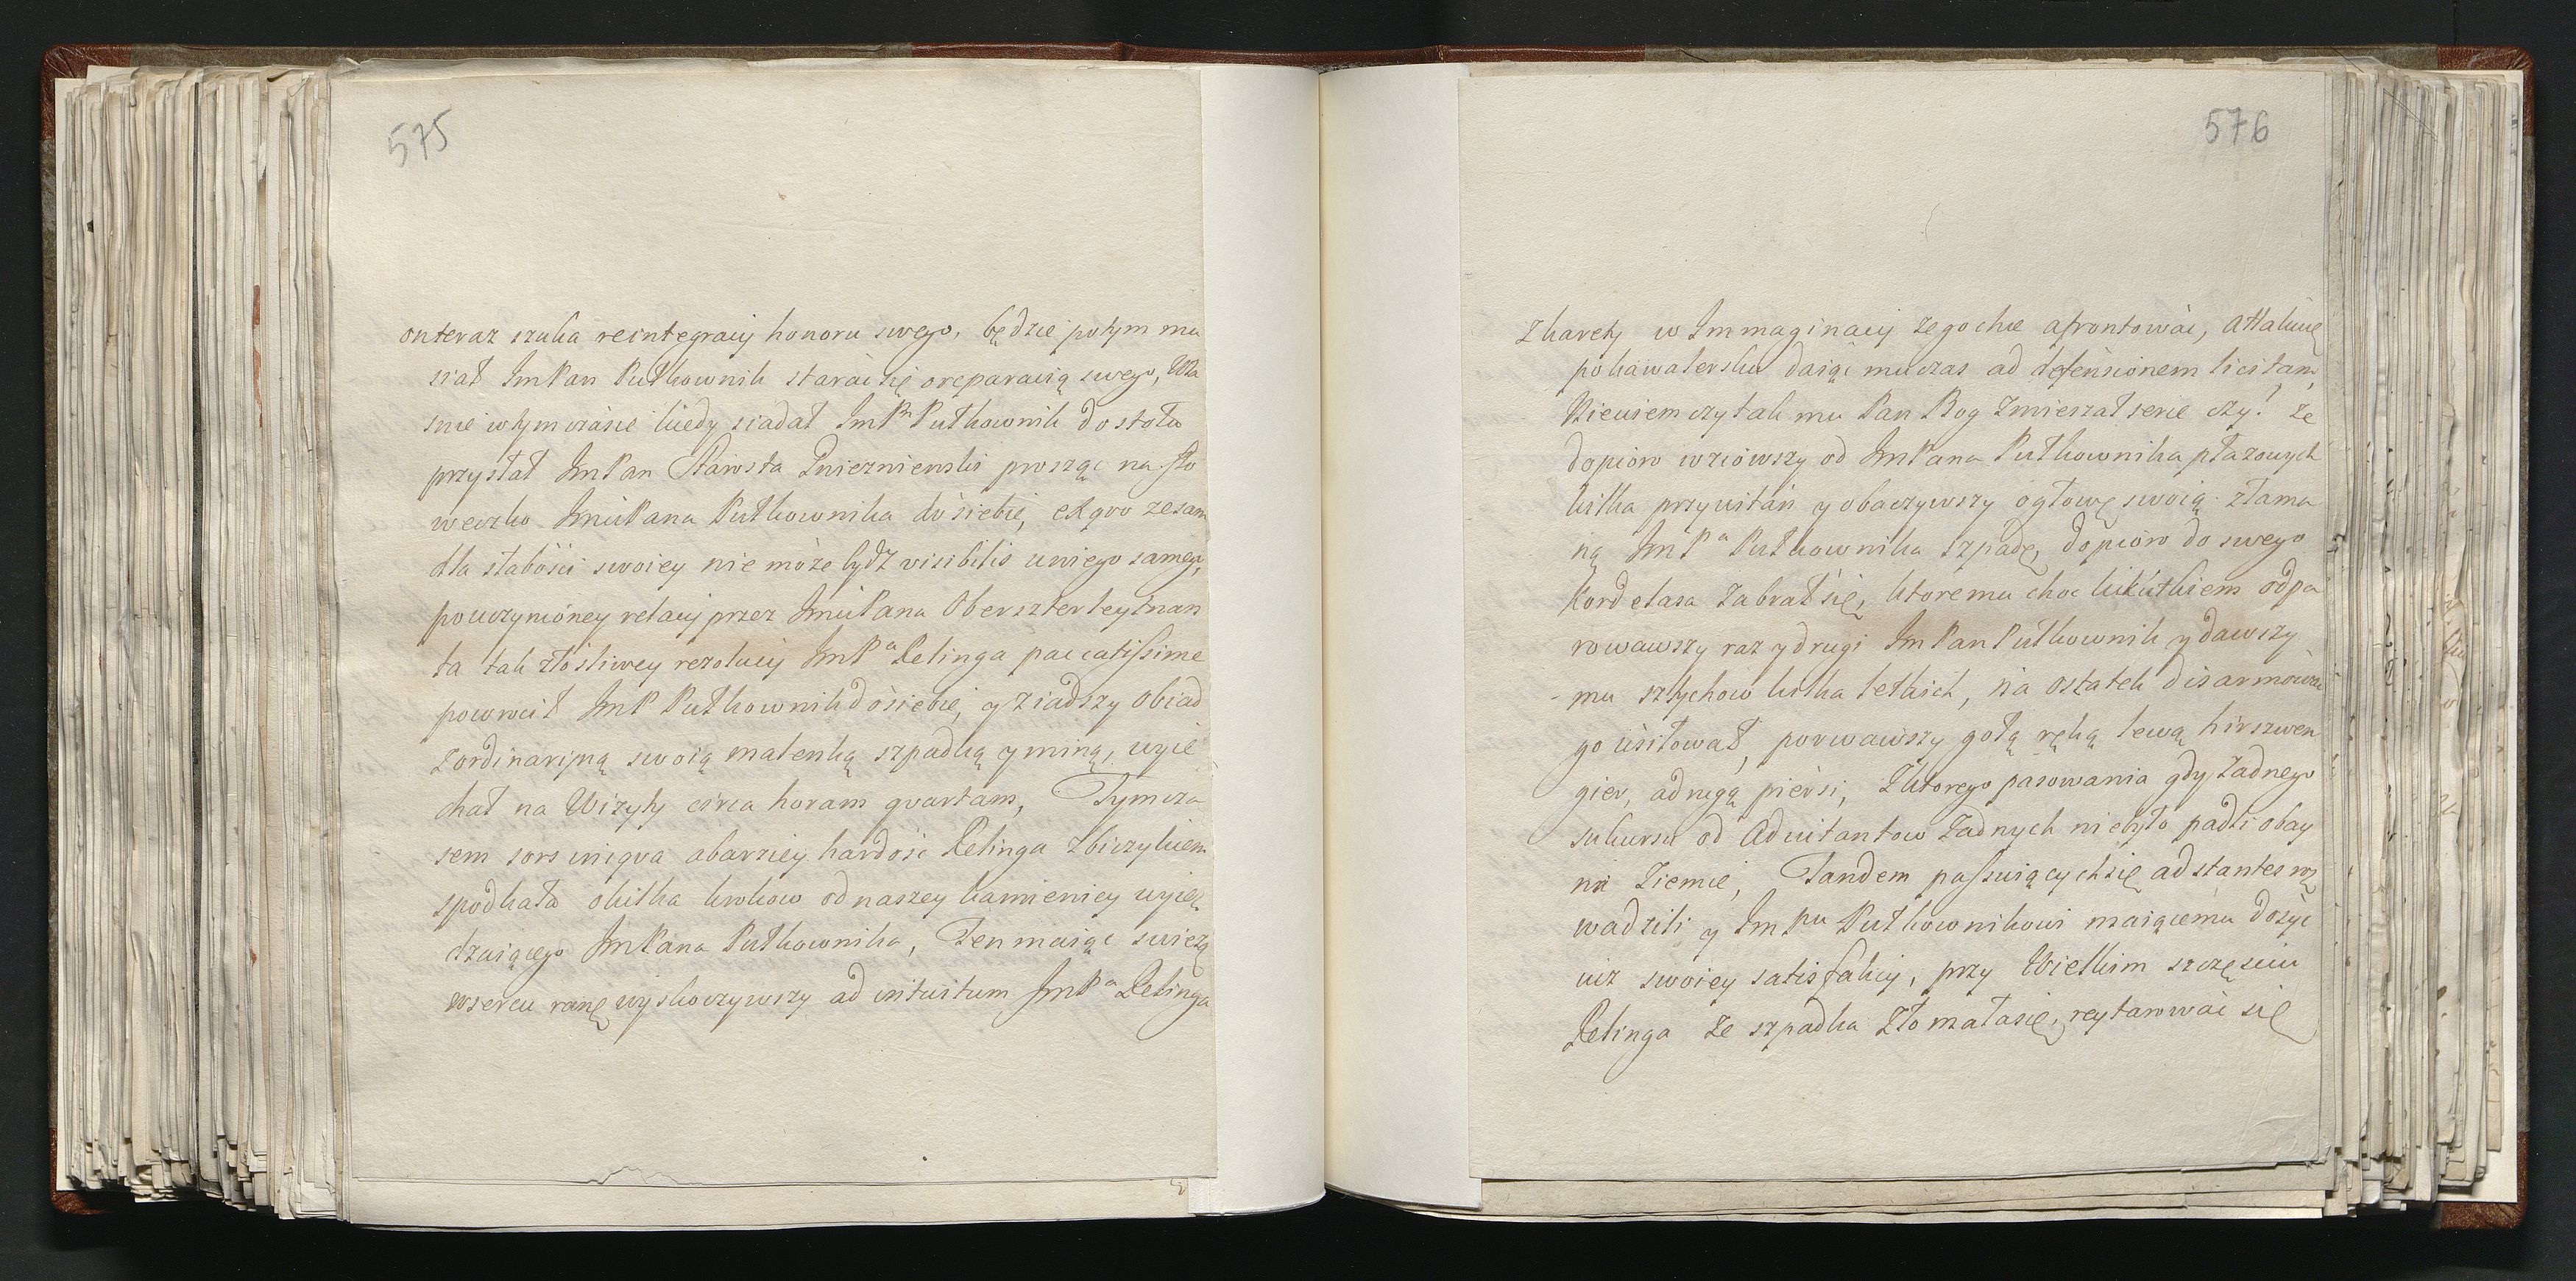 575
on teraz szuka reintegracij honoru swego, będzie potym mu
siał ImPan Pułkownik starać się oreparacią swego, Wła
snie wtym czásie kiedy siadał ImPn Pułkownik do stołu
przysłał ImPan Starosta Gnieznienski prosząc na sło
weczko ImćPana Pułkownika do siebie, ex quo ze sam
dla słabości swoiey nie może bydz visibilis u niego samego,
po uczynioney relacij przez ImćPana Oberszterleytnan
ta tak złosliwey rezolucij ImPa Pelinga paccatissime
powrócił ImP Pułkownik do siebie, y ziadszy Obiad
z ordinaryiną swoią malenką szpadką y miną, wyie
chał na Wizyty circa horam qvartam, Tymcza
sem sors iniqva abarziey hardość Pelinga z biczykiem
spodkała okilka krokow od naszey kamienicy wyież
dzaiącego ImPana Pułkownika, Ten maiąc swiezą
w sercu ranę wyskoczywszy ad intuitum ImPa Pelinga
576
z karety w Immaginacij ze go chce afrontować, attakuię
po kawalersku daiąc mu czas ad defensionem licitam,
Niewiem czy tak mu Pan Bog zmieszał serce czy! ze
dopioro wziowszy od ImPana Pułkownika płazowych
kilka przywitań y obaczywszy o głowę swoią złama
ną ImPa Pułkownika szpadę, dopioro do swego
Kordelasa zabrał się, ktoremu choc kikutkiem odpa
rowawszy raz y drugi ImPan Pułkownik y dawszy
mu sztychow kilka letkich, na ostatek disarmować
go usitował, porwawszy gołą ręką lewą hirszwen
gier, a drugą piersi, z ktorego pasowania gdy żadnego
sukursu od Adiutantow żadnych niebyło padli obay
na ziemie, Tandem passuiących się adstantes roz
wadzili y ImPu Pułkownikowi maiącemu dosyc
iuz swoiey satisfakcij, przy Wielkim szczęsciu
Pelinga ze szpadka złomała się, reytarować się